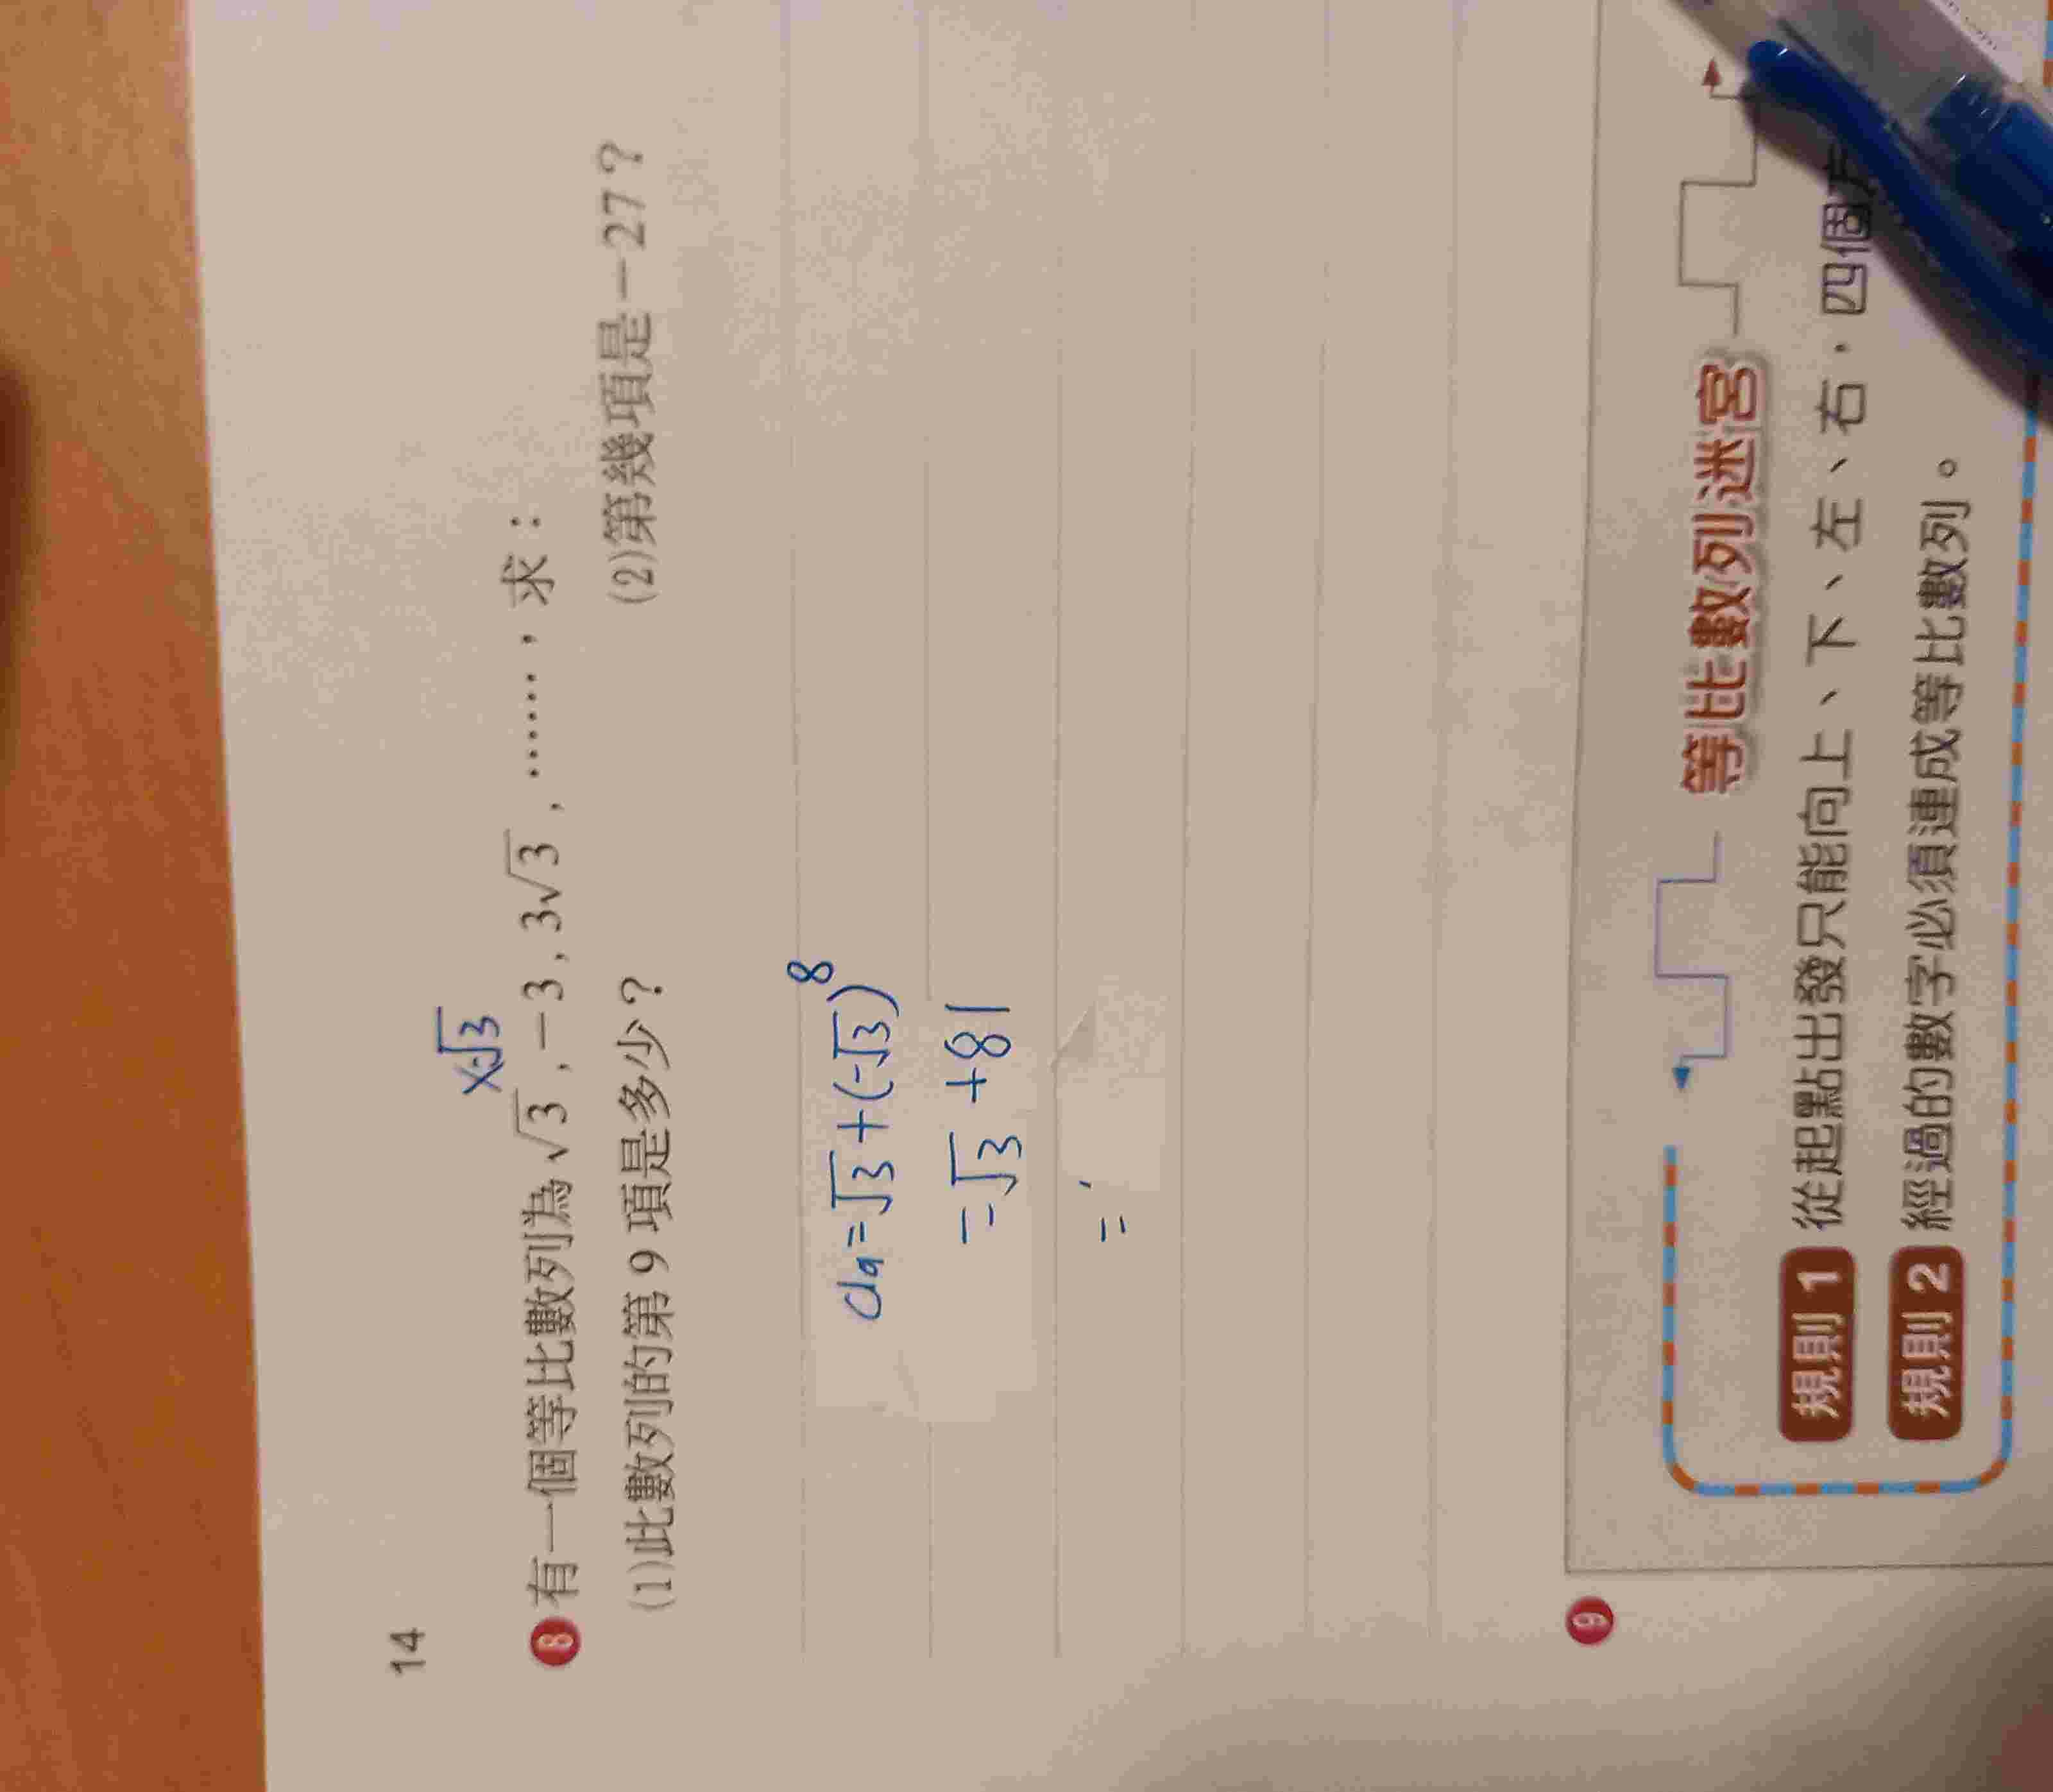 14
×-√3
8 有一個等比數列為√3 , -3 , 3√3 , ⋯⋯ , 求：
(1)此數列的第 9 項是多少？ (2)第幾項是-27？
a₉=√3+(-√3)⁸
=√3 +81
=
9
等比數列迷宮
規則 1 從起點出發只能向上、下、左、右，四個方
規則 2 經過的數字必須連成等比數列。